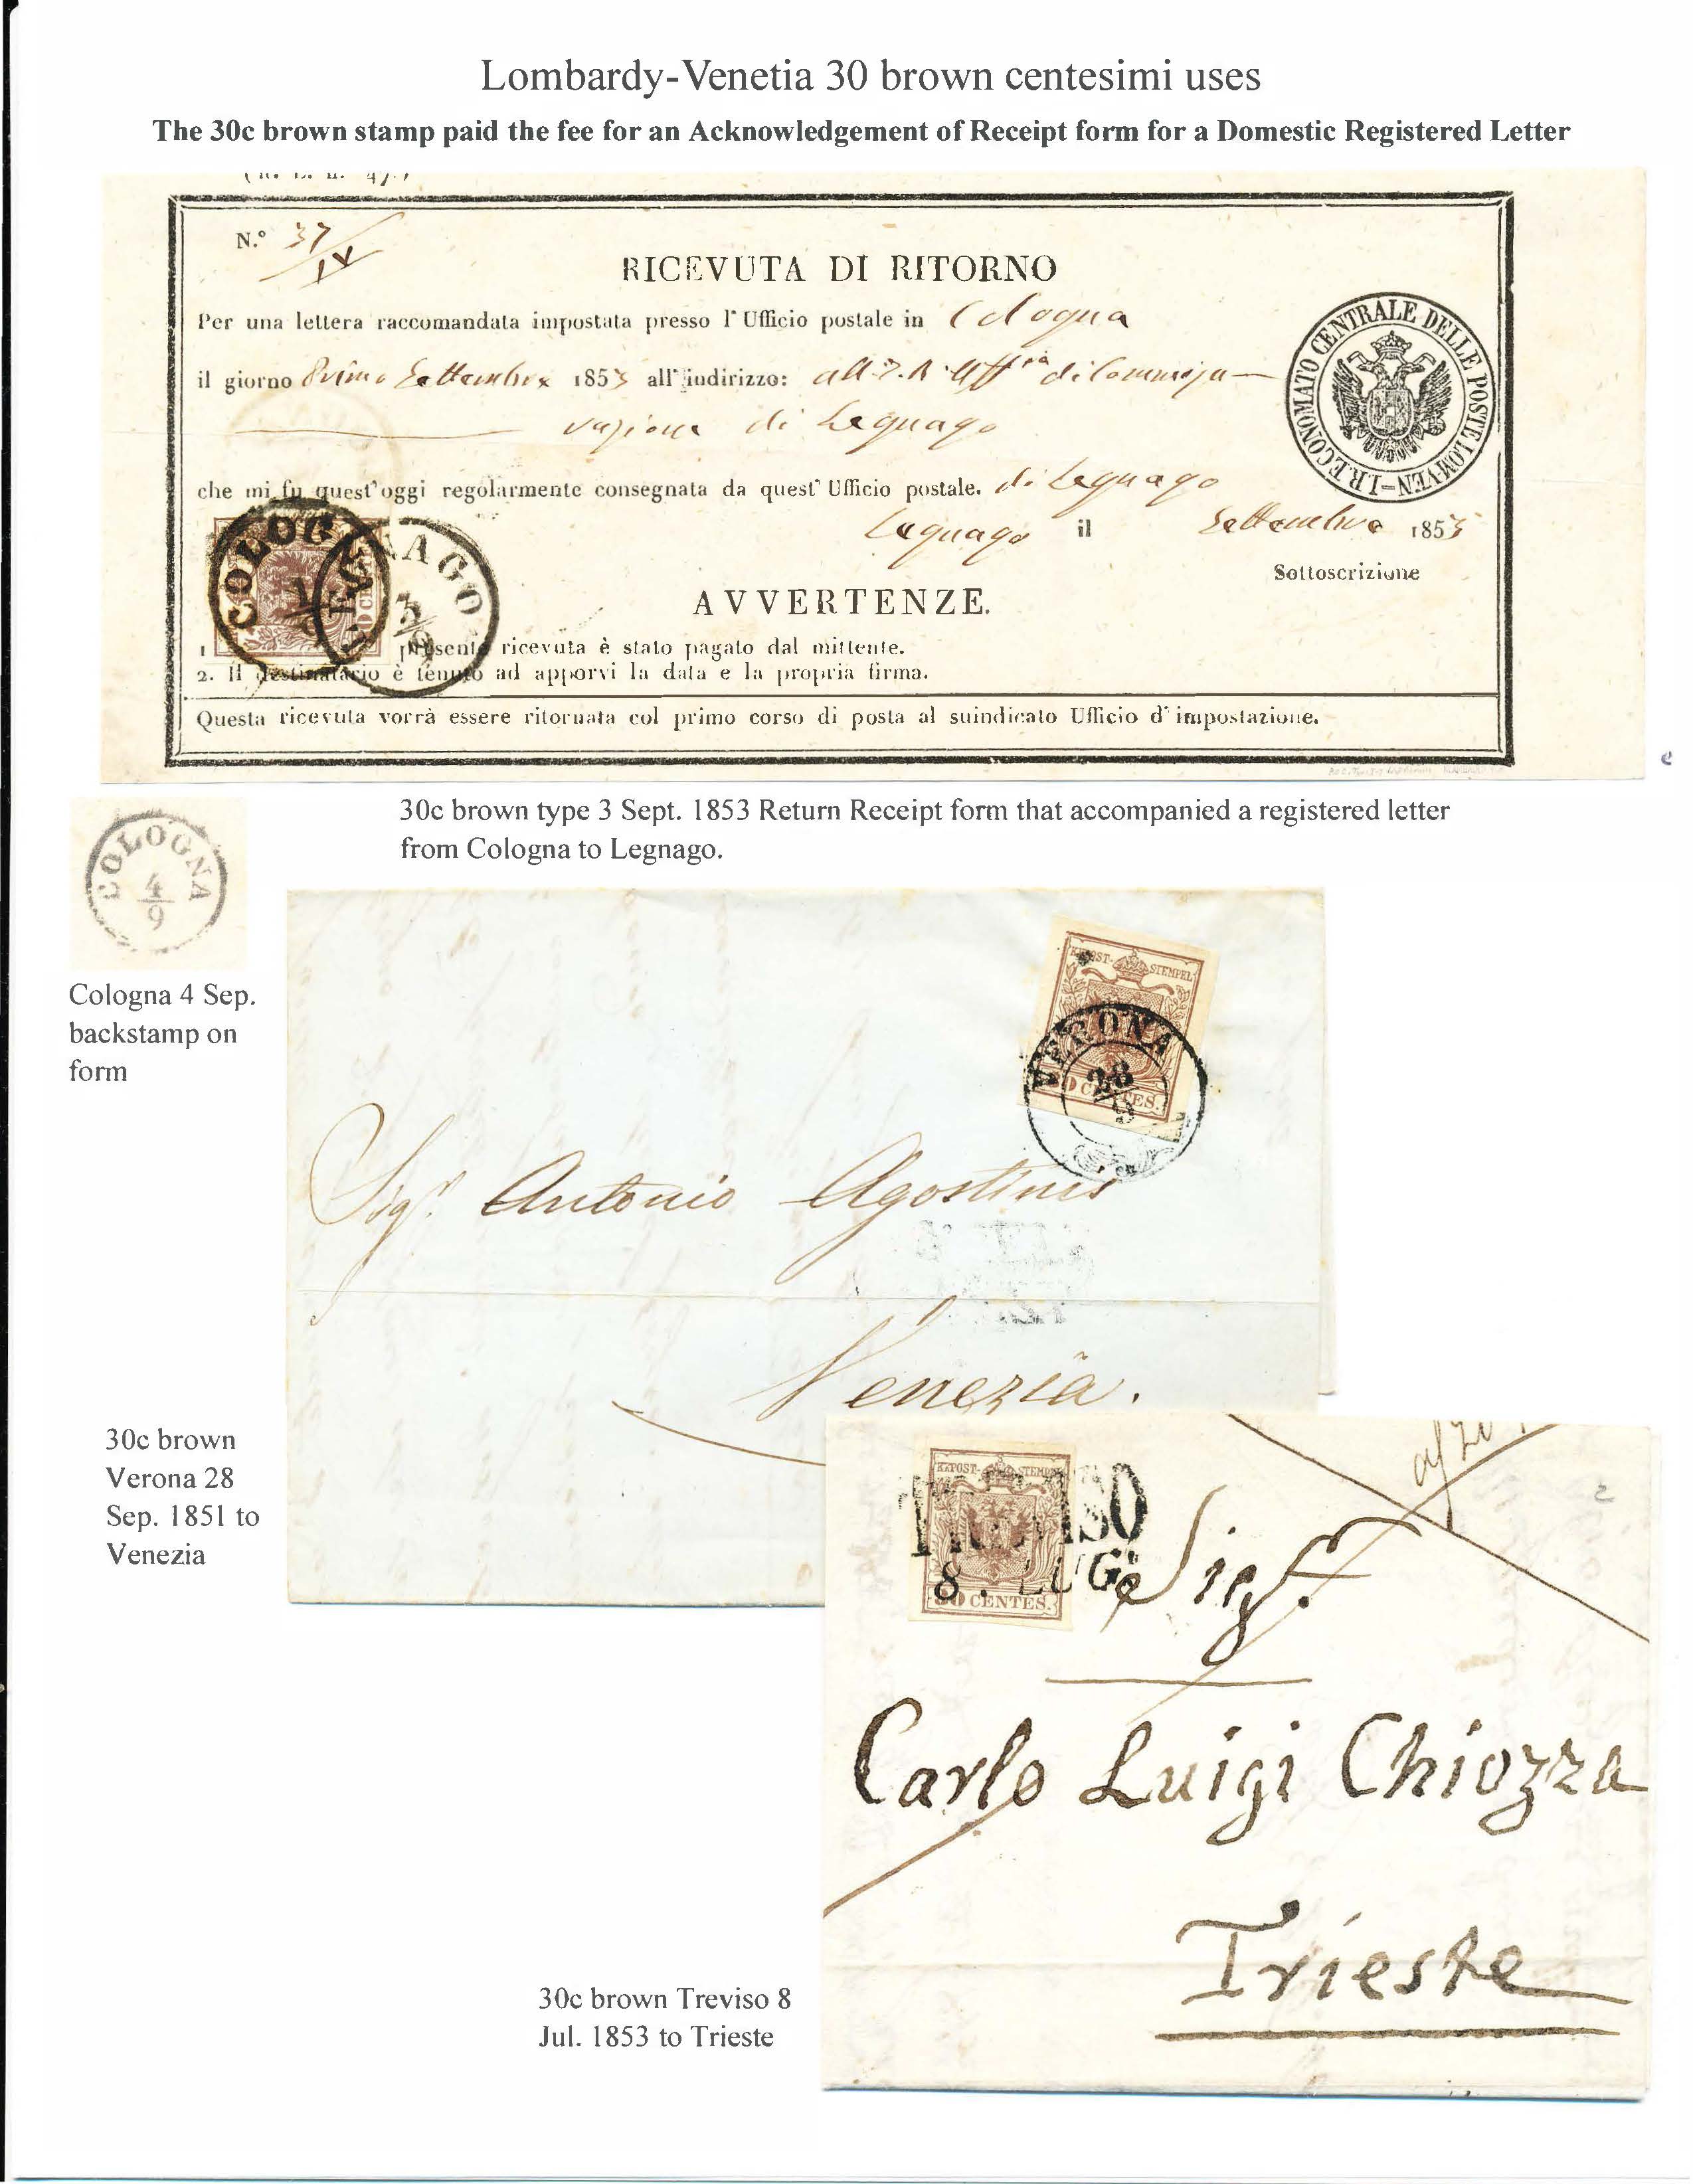 Lombardy-Venetia 30 brown centesimi uses
The 30c brown stamp paid the fee for an Acknowledgement of Receipt form for a Domestic Registered Letter
N.º 37/IX
RICEVUTA DI RITORNO
Per una lettera raccomandata impostata presso l'Ufficio postale in Cologna
il giorno Primo Settembre 1853 all'indirizzo:
di Legnago
che mi fu quest'oggi regolarmente consegnata da quest' Ufficio postale. di Legnago
Legnago il Settembre 1853
Sottoscrizione
I.R. ECONOMATO CENTRALE DELLE POSTE LOM-VEN
COLOG
1/9
LEGNAGO
3/9
AVVERTENZE.
1 presente ricevuta è stato pagato dal mittente.
2. Il destinatario è tenuto ad apporvi la data e la propria firma.
Questa ricevuta vorrà essere ritornata col primo corso di posta al suindicato Ufficio d'impostazione.
30c brown type 3 Sept. 1853 Return Receipt form that accompanied a registered letter
from Cologna to Legnago.
COLOGNA
4/9
Cologna 4 Sep.
backstamp on
form
KKPOST-STEMPEL
VERONA
28/9
CENTES.
Sigr. Antonio Agostinis
Venezia.
30c brown
Verona 28
Sep. 1851 to
Venezia
KKPOST-STEMPEL
TREVISO
8. LUG
30 CENTES.
Sigr.
Carlo Luigi Chiozza
Trieste
30c brown Treviso 8
Jul. 1853 to Trieste